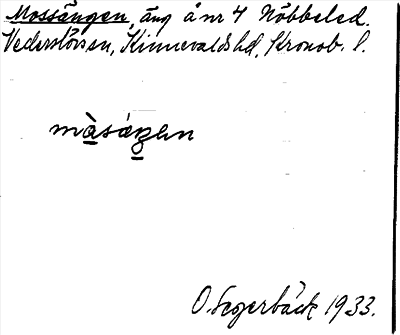 Mossängen, äng å nr 4 Nöbbeled.
Vederslövs sn, Kinnevalds hd, Kronob. l.
màsáŋen
O. Segerbäck 1933.